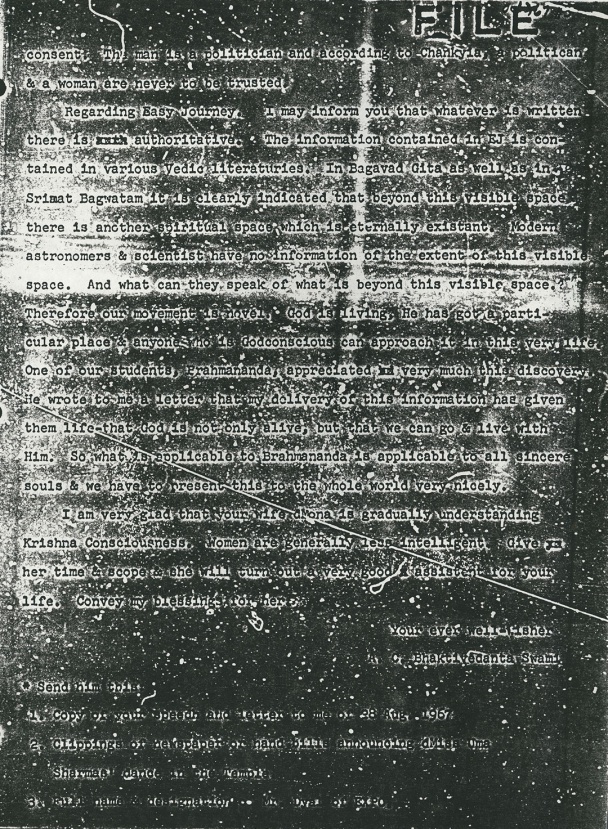 FILE
consent. The man is a politician and according to Chankyia, a politician
& a woman are never to be trusted.
Regarding Easy Journey. I may inform you that whatever is written
there is authoritative. The information contained in EJ is con-
tained in various Vedic literaturies. In Bagavad Gita as well as in
Srimat Bagwatam it is clearly indicated that beyond this visible space
there is another spiritual space which is eternally existant. Modern
astronomers & scientist have no information of the extent of this visible
space. And what can they speak of what is beyond this visible space.?
Therefore our movement is novel. God is living, He has got a parti-
cular place & anyone who is Godconscious can approach it in this very life.
One of our students, Brahmananda, appreciated very much this discovery.
He wrote to me a letter that my delivery of this information has given
them life-that God is not only alive, but that we can go & live with
Him. So what is applicable to Brahmananda is applicable to all sincere
souls & we have to present this to the whole world very nicely.
I am very glad that your wife dMona is gradually understanding
Krishna Consciousness. Women are generally less intelligent. Give
her time & scope & she will turn out a very good assistent for your
life. Convey my blessings for her.
Your ever well-wisher
A. C. Bhaktivedanta Swami
* Send him this
1. Copy of your speech and letter to me of 28 Aug. 1967
2. Clippings of newspaper or hand bills announcing dMiss Uma
Sharmas' dance in the Temple
3. Full name & designation Mr. Dyal of EXPO